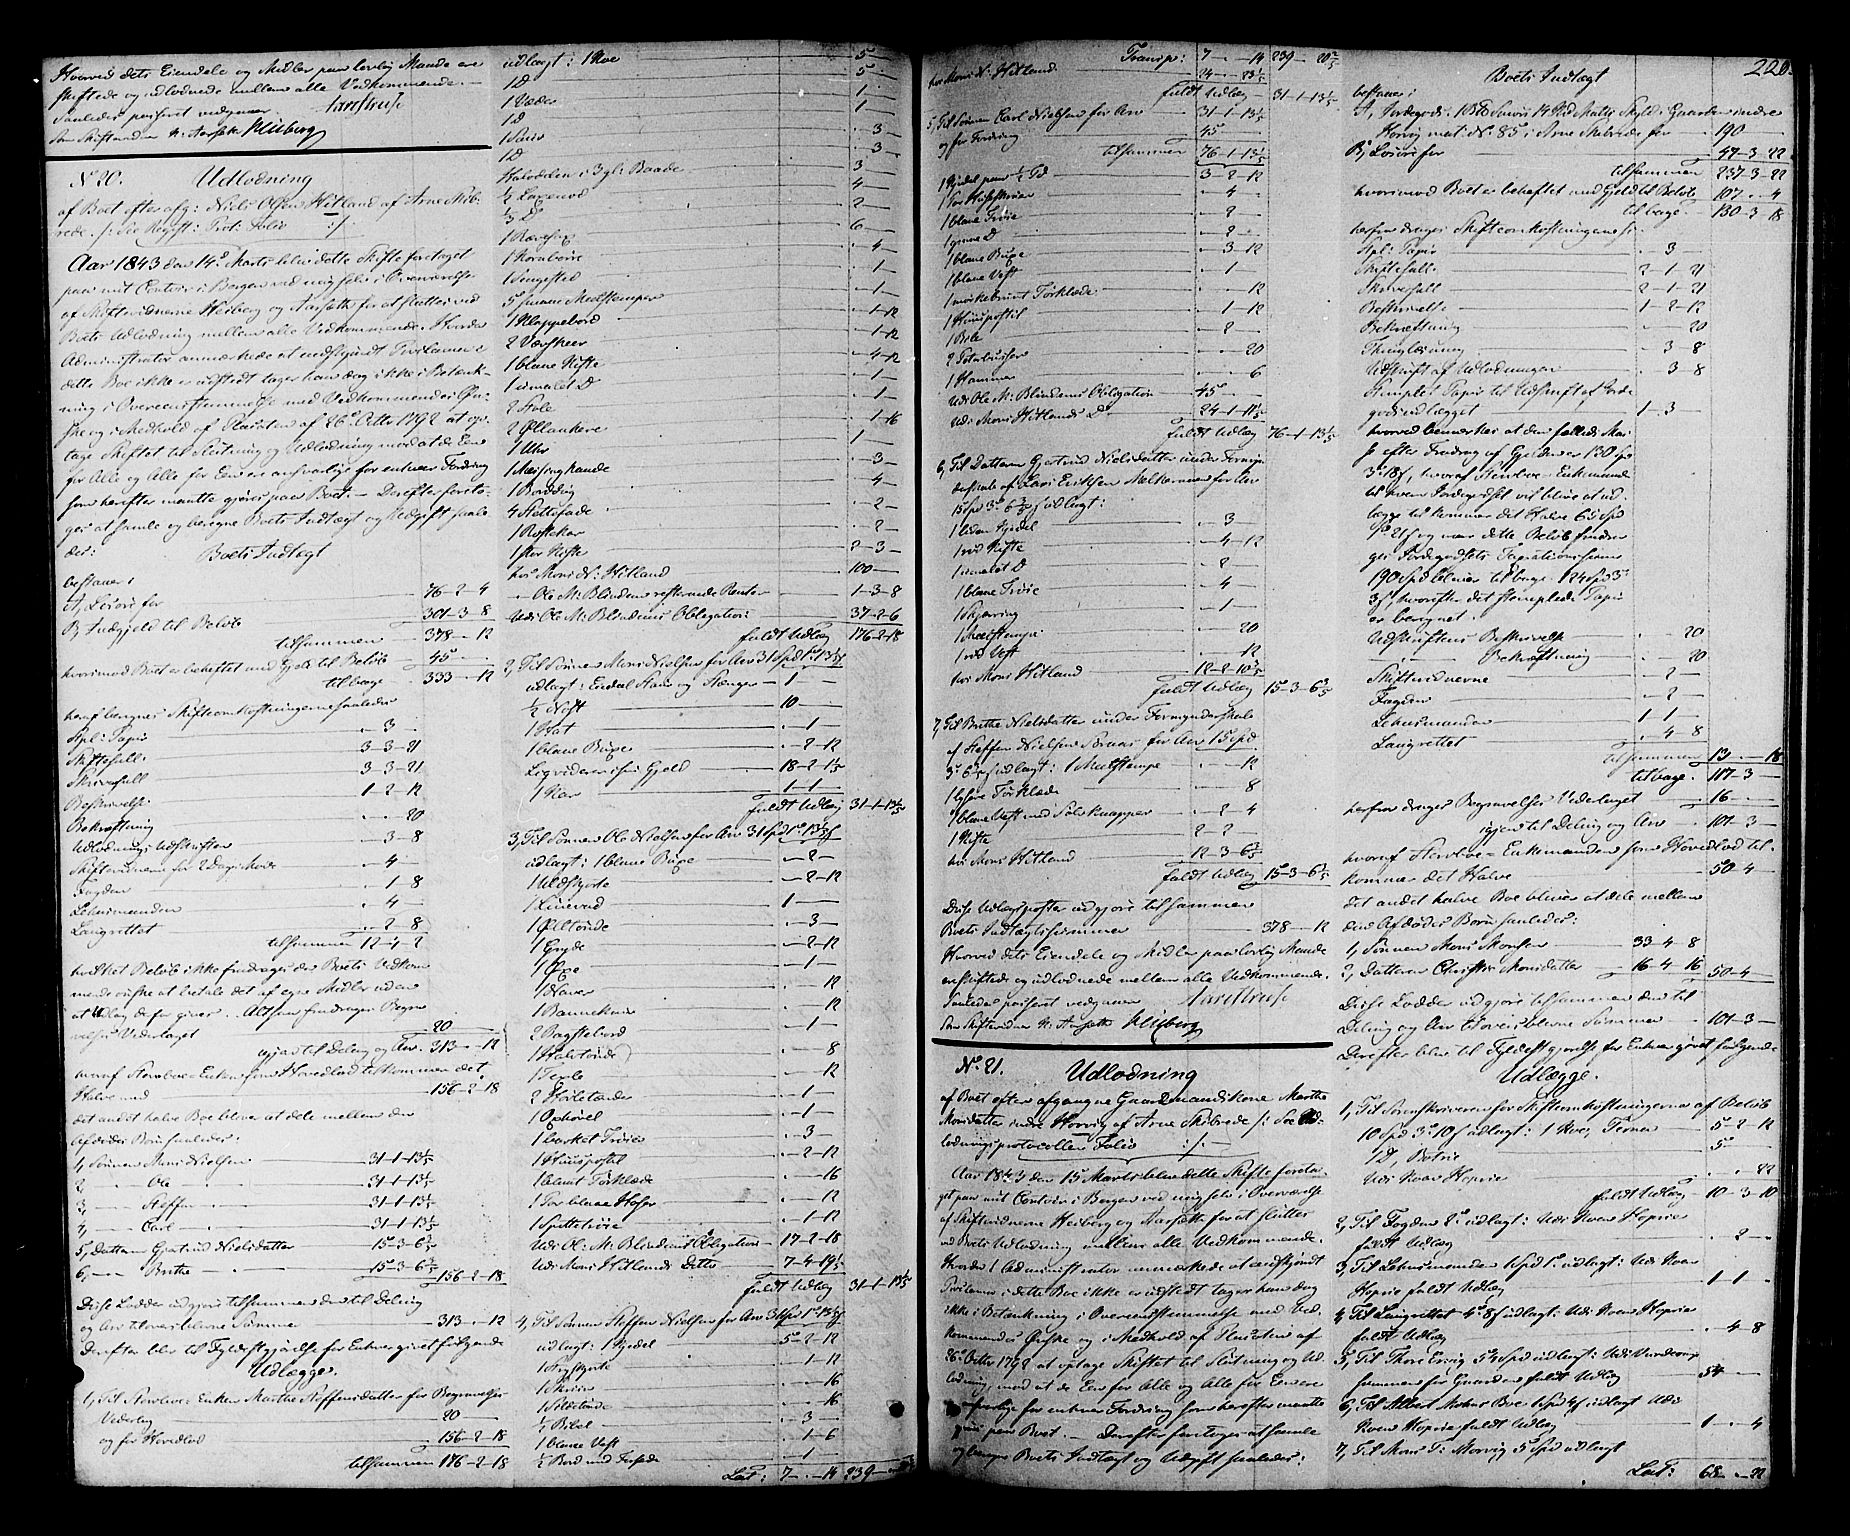 Hvorved dets Eiendele og Midler paa lovlig Maade ere
skiftede og udlodnede mellem alle Vedkommende.
Saaledes passeret vedgaaes
Som Skiftevidner N. Aarsæth Heiberg
No 20. Udlodning
af Boet efter afg: Niels Olsen Hitland af Arne Skib-
rede. /: See Regist: Prot: Folio :/
Aar 1843 den 14de Marts blev dette Skifte foretaget
paa mit Contoir i Bergen ved mig selv i Overværelse
af Skiftevidnerne Heiberg og Aarsæth for at slutte ved
Boets Udlodning mellem alle Vedkommende. Hvorda
Administrator anmærkede at uedskjøndt Proclama i
dette Boe ikke er udstedt tager han dog ikke i Betænk-
ning i Overeensstemmelse med Vedkommendes Øn-
ske og i Medhold af Placaten af 26de Octbr 1792 at op-
tage Skiftet til Slutning og Udlodning mod at de Een
for Alle og Alle for Een ere ansvarlige for enhver Fordring
som herefter maatte gjøres paa Boet. Derefter foreto-
ges at samle og beregne Boets Indtægt og Udgift saale-
des:
Boets Indtægt
bestaaer i
A, Løsøre for 76-2-4
B, Indgjeld til Beløb 301-3-8
tilsammen 378-"-12
hvorimod Boet er behæftet med Gjeld til Beløb 45
tilbage 333-"-12
heraf beregnes Skifteomkostningerne saaledes
Stpl: Papir "-3-"
Skiftesall: 3-3-21
Skriversall 3-3-21
Beskrivelse 1-2-12
Bekræftning 20
Udlodnings Udskrifter 3-8
Skiftevidnerne for 2 Dages Møde 4
Fogden 1-8
Lehnsmanden 4
Laugrettet 2-8
tilsammen 12-4-2
hvilket Beløb ikke fradrages da Boets Vedkom-
mende ønske at betale det af egne Midler uden
at Udlæg derfor giver. Altsaa fradrages Begra-
velses Vederlaget 20
igjen til Deling og Arv 313-"-12
hvoraf Stervboe-Enken som Hovedlod tilkommer det
Halve med 156-2-18
det andet halve Boe bliver at dele mellem den
Afdødes Børn saaledes:
1, Sønnen Mons Nielsen 31-1-13 1/5
2, " Ole " 31-1-13 1/5
3, " Steffen " 31-1-13 1/5
4, " Carl " 31-1-13 1/5
5, Datteren Gjertrud Nielsdatter 15-3-6 3/5
6, " Brithe " 15-3-6 3/5
156-2-18
Disse Lodder udgjøre tilsammen den til Deling
og Arv tilovers blevne Summa 313-"-12
Derefter blev til Fyldestgjørelse for Enhver givet følgende
Udlægge.
1, Til Stervboe-Enken Marthe Steffensdatter for Begravelses
Vederlag 20
og for Hovedlod 156-2-18
tilsammen 176-2-18
udlagt: 1 Koe 5
1 D 5
1 Væder 1
1 D 1
1 Smør 3
1 D 3
Halvdelen i 3 gl: Baade 3
1/2 Laxenod 4
1/3 D 2
1 6
1 Kornbørie 4
1 Sengsted 1
5 smaae Meelstamper 1
1 Klappebord 1-12
2 Væverskeer 1-12
1 blaae Kiste 4-12
1 umalet D 1
2 Stole 1
2 Øllankere 1-16
1 Uhr 1
1 Messing kande 3
1 Borddug 4
4 Slettefade 2
1 Rostekar 2
1 stor Kiste 2-3
hos Mons N: Hitland 100
" Ole M: Blindems resterende Renter 1-3-8
Udi Ole M: Blindems Obligation 37-2-6
fuldt Udlæg 176-2-18
2, Til Sønnen Mons Nielsen for Arv 31 Spd 1 ort 13 1/5 s
udlagt: Eendal Staur og Stænger 1
1/2 Nøst 10
1 Hat 1
1 blaae Buxe 2-12
Liqviderer i sin Gjeld 18-2-1 1/5
1 Kar 1-1
fuldt Udlæg 31-1-13 1/5
3, Til Sønnen Ole Nielsen for Arv 31 Spd 1 ort 13 1/5 s
udlagt: 1 blaae Buxe 2
1 Uldskjorte 2-12
1 1
1 Øltønde 3
1 Gryde 2-12
1 Øxe 1
1 Naver 12
1 12
2 Bagstebord 1
1 Halvtønde 8
1 12
2 1
1 Ophøvel 1
1 1-3
1 Huuspostil 2-12
1 blaat Tørklæde 16
1 Par blaae Hoser 12
1 Spittetrøie 1-12
Udi Ol: M: Blindems Obligation 17-2-18
Udi Mons Hitlands Dette 7-4-19 1/5
fuldt Udlæg 31-1-13 1/5
4, Til Sønnen Steffen Nielsen for Arv 31 Spd 1 ort 13 1/5 s
udlagt: 1 Kjedel 5-2-12
1 1-12
1 Skrin 16
1 16
1/2 Bibel 3
1 blaae Vest 1-6
1/2 Bord med 1
Lat: 7-"-14 239
Transp: 7-"-14 239-"-20 2/5
hos Mons N: Hitland 24-"-23 1/5
fuldt Udlæg 31-1-13 1/5
5, Til Sønnen Carl Nielsen for Arv 31-1-13 1/5
og for Fordring 45
tilsammen 76-1-13 1/5
1 Kjedel paa 1/2 Td 3-2-12
1 4
1 blaae Trøie 2
1 grøn D 2
1 blaae Buxe 3-12
1 blaae Vest 1
1 mørkebruunt Tørklæde 12
1 Huuspostil 1-12
1 Bile 2
2 20
1 Hammer 6
Udi Ole M: Blindems Obligation 45
Udi Mons Hitlands Do 24-1-11 1/5
fuldt Udlæg 76-1-13 1/5
6, Til Datteren Gjertrud Nielsdatter under Formyn-
derskab af Lars Erichsen Mælkeraaen for Arv
15 Spd 3 ort 6 3/5 s udlagt:
1 liden Kjedel 3
1 rød Kiste 4-12
1 umalet D 2
1 blaae Trøie 4
1 Skjæring 1
1 Meelstampe 20
1 rød Vest 12
hos Mons Hitland 12-2-10 3/5
fuldt Udlæg 15-3-6 3/5
7, Til Brithe Nielsdatter under Formynderskab
af Steffen Nielsen for Arv 15 Spd
3 ort 6 3/5 s udlagt: 1 Meelstampe 12
1 Tørklæde 8
1 blaae Vest med Sølvknapper 2-4
1 Kiste 2-2
hos Mons Hitland 12-3-6 3/5
fuldt Udlæg 15-3-6 3/5
Disse Udlægsposter udgjøre tilsammen
Boets Indtægtssummer 378-"-12
Hvorved dets Eiendele og Midler paa lovlig Maade
ere skiftede og udlodnede mellem alle Vedkommende.
Saaledes passeret vedgaaes
Som Skiftevidner N. Aarsæth Heiberg
No 21. Udlodning
af Boet efter afgangne Gaardmandskone Marthe
Monsdatter indre Horvig af Arne Skibrede /: See Ud-
lodningsprotocollen Folio :/
Aar 1843 den 15de Marts blev dette Skifte foreta-
get paa mit Contoir i Bergen ved mig selv i Overværelse
af Skiftevidnerne Heiberg og Aarsæth for at slutte
ved Boets Udlodning mellem alle Vedkommende.
Hvorda Administrator anmærkede at endskjøndt
Proclama i dette Boe ikke er udstedt tager han dog
ikke i Betænkning i Overeensstemmelse med Ved-
kommendes Ønske og i Medhold af Placaten af
26de Octbr 1792 at optage Skiftet til Slutning og Ud-
lodning, mod at de Een for Alle og Alle for Een ere
ansvarlige for enhver Fordring som herefter maatte
gjøres paa Boet. Derefter foretoges at samle
og beregne Boets Indtægt og Udgift saaledes:
226.
Boets Indtægt
bestaaer i
A, Jordegods: 1 Bpd Smør 1/4 Hd Malts Skyld i Gaarden indre
Horvig mat: No 85 i Arne Skibrede for 190
B, Løsøre for 47-3-22
tilsammen 237-3-22
hvorimod Boet er behæftet med Gjeld til Beløb 107-"-4
tilbage 130-3-18
herfra drages Skifteomkostningerne:
Stpl: Papir 3
Skiftesall: 2-1-21
Skriversall 2-1-21
Beskrivelse 1-2-12
Bekræftning 20
Thinglæsning 3-8
Udskrift af Udlodningen 3-8
Stemplet Papir til Udskrift af Jorde-
godsudlægget 1-3
hvorved bemærkes at den fælleds Mas-
se efter Fradrag af Gjelden er 130 Spd
3 ort 18 s, hvoraf Stervboe-Enkemand
til hvem Jordegodset vil blive at ud-
lægge tilkommer det Halve 65 Spd
1 ort 21 s og naar dette Beløb fradra-
ges Jordegodsets Taxationssum
190 Spd bliver tilbage 124 Spd 3 ort
3 s, hvorefter det stemplede Papir
er beregnet.
Udskriftens Beskrivelse 20
" Bekræftning 20
Skiftevidnerne 2
Fogden 2
Lehnsmanden 1-1
Laugrettet 4-8
tilsammen 13-"-18
tilbage 117-3
herfra drages Begravelses Vederlaget 16
igjen til Deling og Arv 101-3
hvoraf Stervboe-Enkemanden som Hovedlod til-
kommer det Halve 50-4
det andet halve Boe bliver at dele mellem
den Afdødes Børn saaledes:
1, Sønnen Mons Monsen 33-4-8
2, Datteren Christie Monsdatter 16-4-16 50-4
Disse Lodder udgjøre tilsammen den til
Deling og Arv tilovers blevne Summa 101-3
Derefter blev til Fyldestgjørelse for Enhver givet følgende
Udlægge.
1, Til Sorenskriveren for Skifteomkostningerne af Beløb
10 Spd 3 ort 10 s udlagt: 1 Koe, Ternes 5-2-12
1 D, Botrøe 5
Udi Koen Hoprie 22
fuldt Udlæg 10-3-10
2, Til Fogden 2 ort udlagt: Udi Koen Hoprie
fuldt Udlæg 2
3, Til Lehnsmanden 1 Spd 1 ort udlagt: Udi Koen
Hoprie fuldt Udlæg 1-1
4, Til Laugrettet 4 ort 8 s udlagt: Udi Koen Hoprie
fuldt Udlæg 4-8
5, Til Thore Ervig 54 Spd udlagt: Udi Vurderings
summen for Gaarden fuldt Udlæg 54
6, Til Albert Mohns Boe 1 Spd 4 s udlagt Udi
Koen Hoprie fuldt Udlæg 1-"-4
7, Til Mons T: Morvig 5 Spd udlagt
Lat: 68-"-22